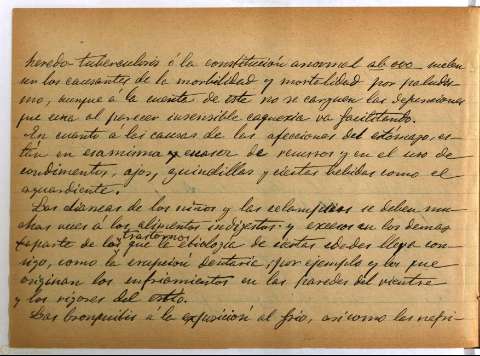 heredo-tuberculosis ó la constitución anormal ab ovo suelen
ser los causantes de la morbilidad y mortalidad por paludis-
mo, aunque á la cuenta de este no se carguen las defunciones
que una al parecer insensible caquexia va facilitando.
En cuanto a las causas de las afecciones del estómago, es-
tán en esa misma escasez de recursos y en el uso de
condimentos, ajos, guindillas y ciertas bebidas como el
aguardiente.
Las diarreas de los niños y las eclampsias se deben mu-
chas veces á los alimentos indigestos y excesos en los demas
aparte de los trastornos que la biología de ciertas edades lleva con-
sigo, como la erupción dentaria, por ejemplo y los que
originan los enfriamientos en las paredes del vientre
y los rigores del estío.
Las bronquitis á la exposición al frio, asi como las nefri-